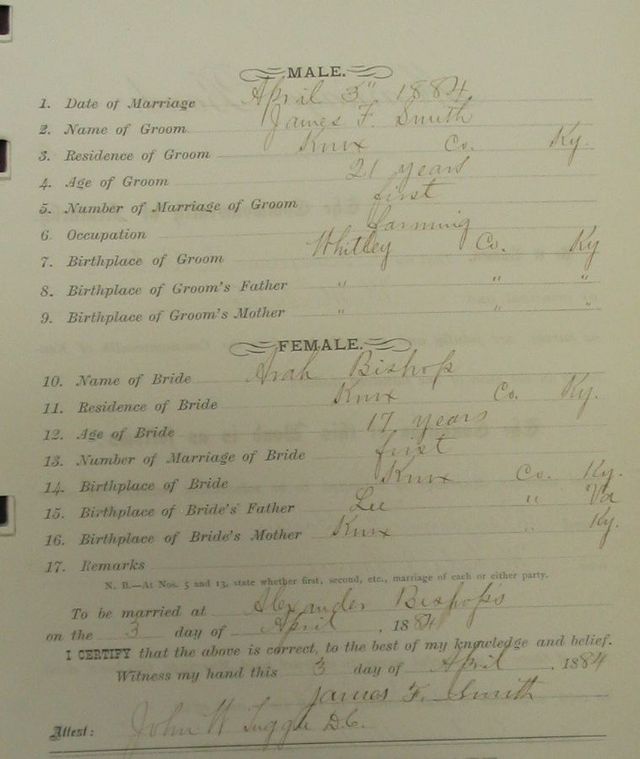 MALE.
1. Date of Marriage April 3" 1884
2. Name of Groom James F. Smith
3. Residence of Groom Knox Co. Ky.
4. Age of Groom 21 years
5. Number of Marriage of Groom first
6. Occupation farming
7. Birthplace of Groom Whitley Co. Ky
8. Birthplace of Groom's Father " " "
9. Birthplace of Groom's Mother " " "
FEMALE.
10. Name of Bride Arah Bishop
11. Residence of Bride Knox Co. Ky.
12. Age of Bride 17 years
13. Number of Marriage of Bride first
14. Birthplace of Bride Knox Co. Ky.
15. Birthplace of Bride's Father Lee " Va
16. Birthplace of Bride's Mother Knox " Ky.
17. Remarks
N. B.—At Nos. 5 and 13, state whether first, second, etc., marriage of each or either party.
To be married at Alexander Bishop's
on the 3 day of April, 1884
I CERTIFY that the above is correct, to the best of my knowledge and belief.
Witness my hand this 3 day of April, 1884
James F. Smith
Attest: John W Tuggle D.C.